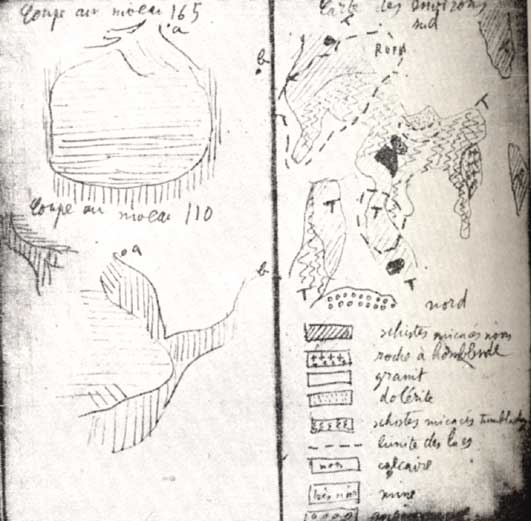 Coupe au niveau 165
a
b
Coupe au niveau 110
a
b
Carte des environs
sud
T
T
T
T
T
T
nord
schistes micacés noirs
roche à hornblende
granit
dolérite
schistes micacés
limite des lacs
noir calcaire
très noir mine